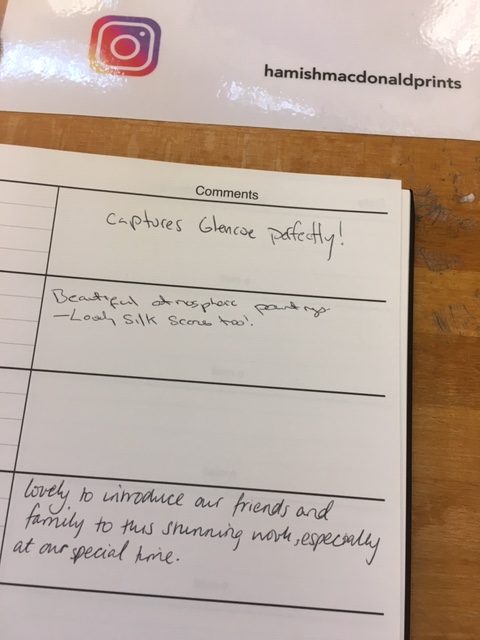 hamishmacdonaldprints
Comments
Captures Glencoe perfectly!
Beautiful atmospheric paintings
- Lovely Silk Scarves too!
lovely to introduce our friends and
family to this stunning work, especially
at our special time.